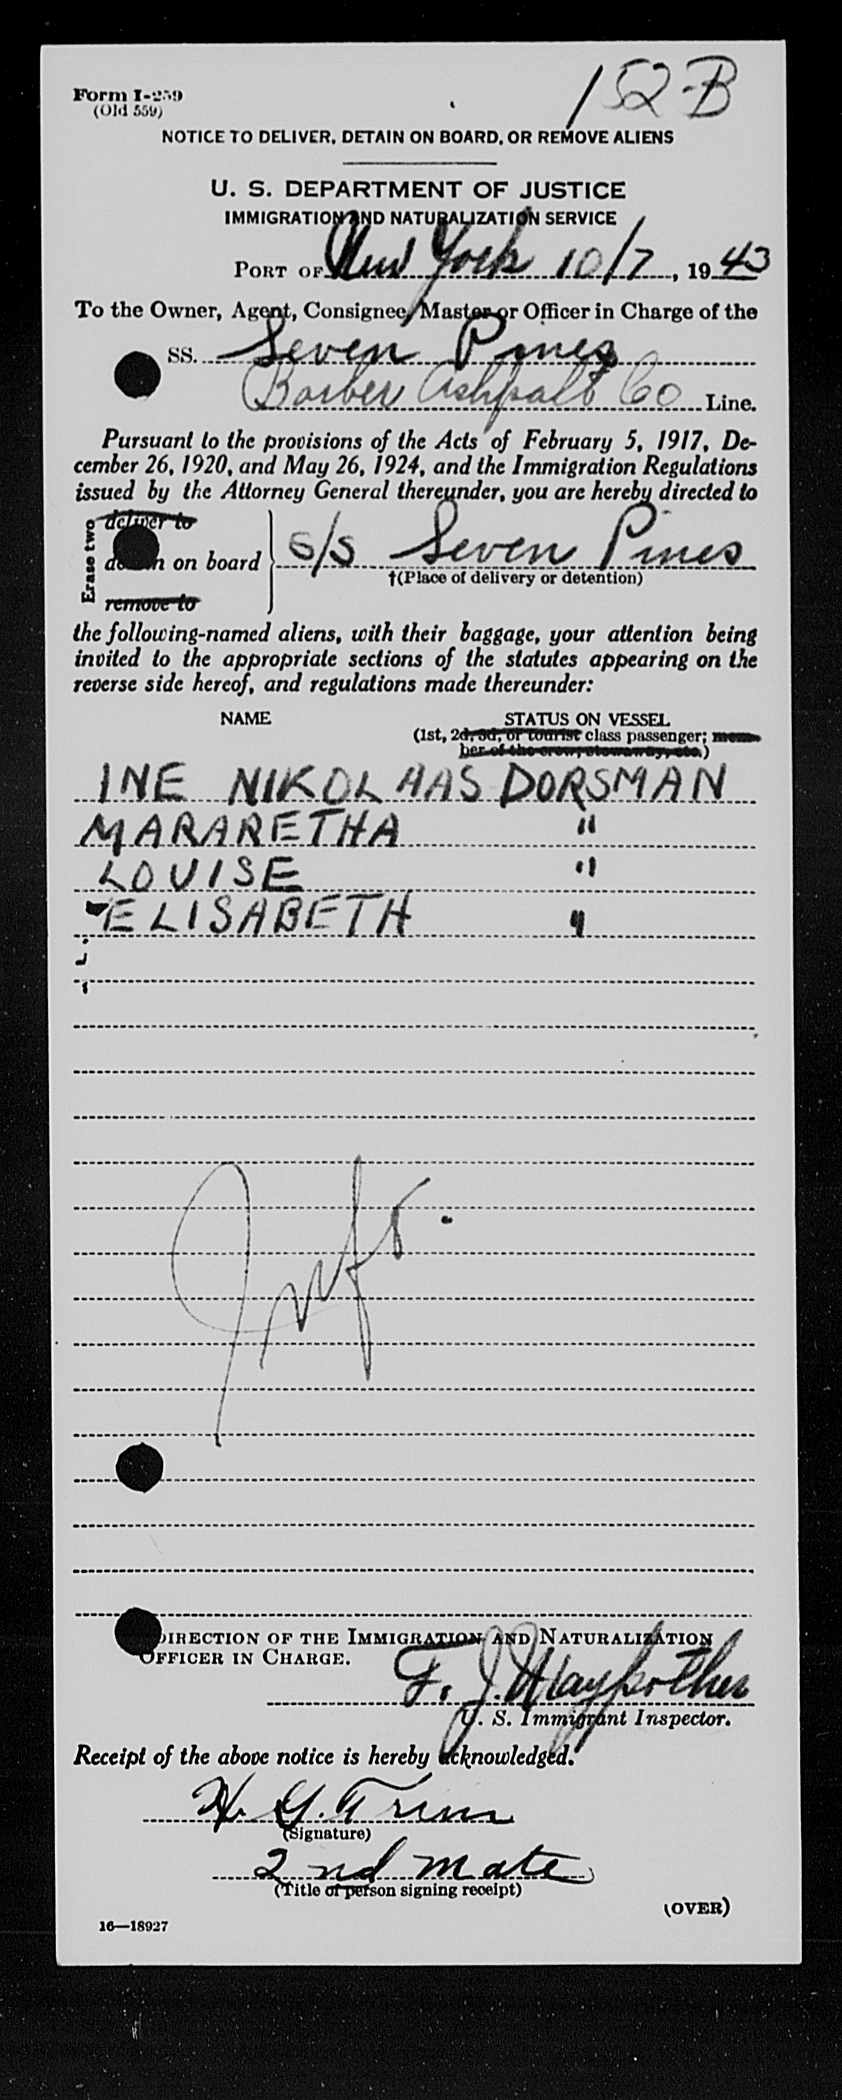 152-B
Form I-259
(Old 559)
NOTICE TO DELIVER, DETAIN ON BOARD, OR REMOVE ALIENS
U. S. DEPARTMENT OF JUSTICE
IMMIGRATION AND NATURALIZATION SERVICE
PORT OF New York 10/7, 1943
To the Owner, Agent, Consignee, Master or Officer in Charge of the
SS. Seven Pines
Barber Ashpalt Co Line.
Pursuant to the provisions of the Acts of February 5, 1917, De-
cember 26, 1920, and May 26, 1924, and the Immigration Regulations
issued by the Attorney General thereunder, you are hereby directed to
Erase two
deliver to
detain on board
remove to
S/S Seven Pines
†(Place of delivery or detention)
the following-named aliens, with their baggage, your attention being
invited to the appropriate sections of the statutes appearing on the
reverse side hereof, and regulations made thereunder:
NAME STATUS ON VESSEL
(1st, 2d, 3d, or tourist class passenger; mem-
ber of the crew, stowaway, etc.)
INE NIKOLAAS DORSMAN
MARARETHA "
LOUISE "
ELISABETH "
DIRECTION OF THE IMMIGRATION AND NATURALIZATION
OFFICER IN CHARGE.
F. J. Maypother
U. S. Immigrant Inspector.
Receipt of the above notice is hereby acknowledged.
H. G. Trim
(Signature)
2nd mate
(Title of person signing receipt)
(OVER)
16—18927